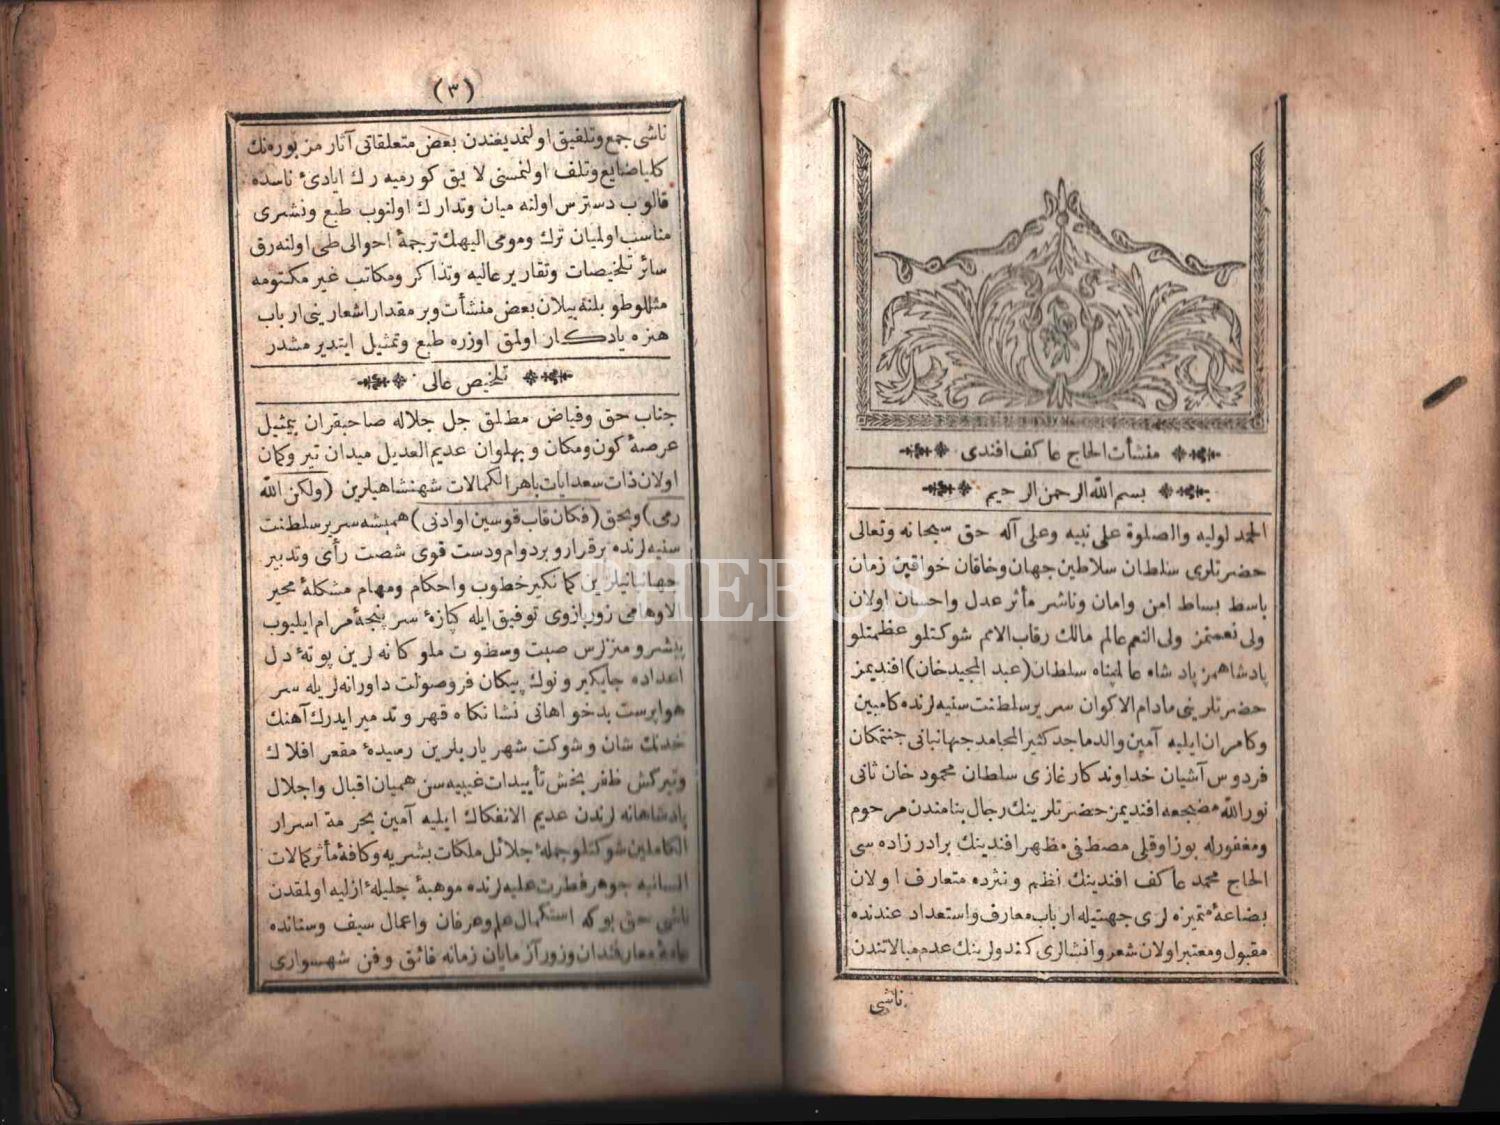 منشأت الحاج عاكف افندی
بسم الله الرحمن الرحيم
الحمد لوليه والصلوة على نبيه وعلى آله حق سبحانه وتعالى
حضرتلری سلطان سلاطين جهان وخاقان خواقين زمان
باسط بساط امن وامان وناشر مأثر عدل واحسان اولان
ولی نعمتمز ولی النعم عالم مالك رقاب الامم شوكتلو عظمتلو
پادشاهمز پادشاه عالمپناه سلطان (عبد المجيد خان) افنديمز
حضرتلرينی مادام الاكوان سرير سلطنت سنيه لرنده كامبين
وكامران ايليه آمين والد ماجد كثير المحامد جهانبانی جنتمكان
فردوس آشيان خداوندكار غازی سلطان محمود خان ثانی
نور الله مضجعه افنديمز حضرتلرينك رجال بنامندن مرحوم
ومغفورله بوزاوقلی مصطفی مظهر افندينك برادر زاده سی
الحاج محمد عاكف افندينك نظم ونثرده متعارف اولان
بضاعهٔ متميزه لری جهتيله ارباب معارف واستعداد عندنده
مقبول ومعتبر اولان شعر وانشالری كندولرينك عدم مبالاتندن
ناشی
(٣)
ناشی جمع وتلفيق اولنمديغندن بعض متعلقاتی آثار مزبوره نك
كليا ضايع وتلف اولنمسنی لايق كورميه رك ايادئ ناسده
قالوب دسترس اولنه ميان وتدارك اولنوب طبع ونشری
مناسب اولميان ترك ومومی اليهك ترجمهٔ احوالی طی اولنه رق
سائر تلخيصات وتقارير عاليه وتذاكر ومكاتب غير مكتومه
مثللو طويلنه بيلان بعض منشأت وبر مقدار اشعارينی ارباب
هنره يادكار اولمق اوزره طبع وتمثيل ايتديرمشدر
تلخيص عالی
جناب حق وفياض مطلق جل جلاله صاحبقران بيمثيل
عرصهٔ كون ومكان و پهلوان عديم العديل ميدان تير وكمان
اولان ذات سعدآيات باهر الكمالات شهنشاهيلرين (ولكن الله
رمی) وبحق (فكان قاب قوسين او ادنی) هميشه سرير سلطنت
سنيه لرنده برقرار و بردوام ودست قوی شصت رأی وتدبير
جهانبانيلرين كمانكير خطوب واحكام ومهام مشكلهٔ محير
الاوهامی زور بازوی توفيق ايله كپازهٔ سر پنجهٔ مرام ايليوب
پيشرو منزلرس صيت وسطوت ملوكانه لرين پوتهٔ دل
اعداده جايكير ونوك پيكان فروصولت داورانه لريله سر
هواپرست بدخواهانی نشانكاه قهر وتدمير ايدرك آهنك
خدنك شان وشوكت شهرياريلرين رسيدهٔ مقعر افلاك
وتيركش ظفر بخش تأييدات غيبيه سن هميان اقبال واجلال
پادشاهانه لرندن عديم الانفكاك ايليه آمين بحرمة اسرار
الكاملين شوكتلو جملهٔ جلائل ملكات بشريه وكافهٔ مأثر كمالات
انسانيه جوهر فطرت عليه لرنده موهبهٔ جليلهٔ ازليه اولمقدن
ناشی حق بو كه استكمال علم وعرفان واعمال سيف وسنانده
عامهٔ معارفمندان وزورآزمايان زمانه فائق وفن شهسواری